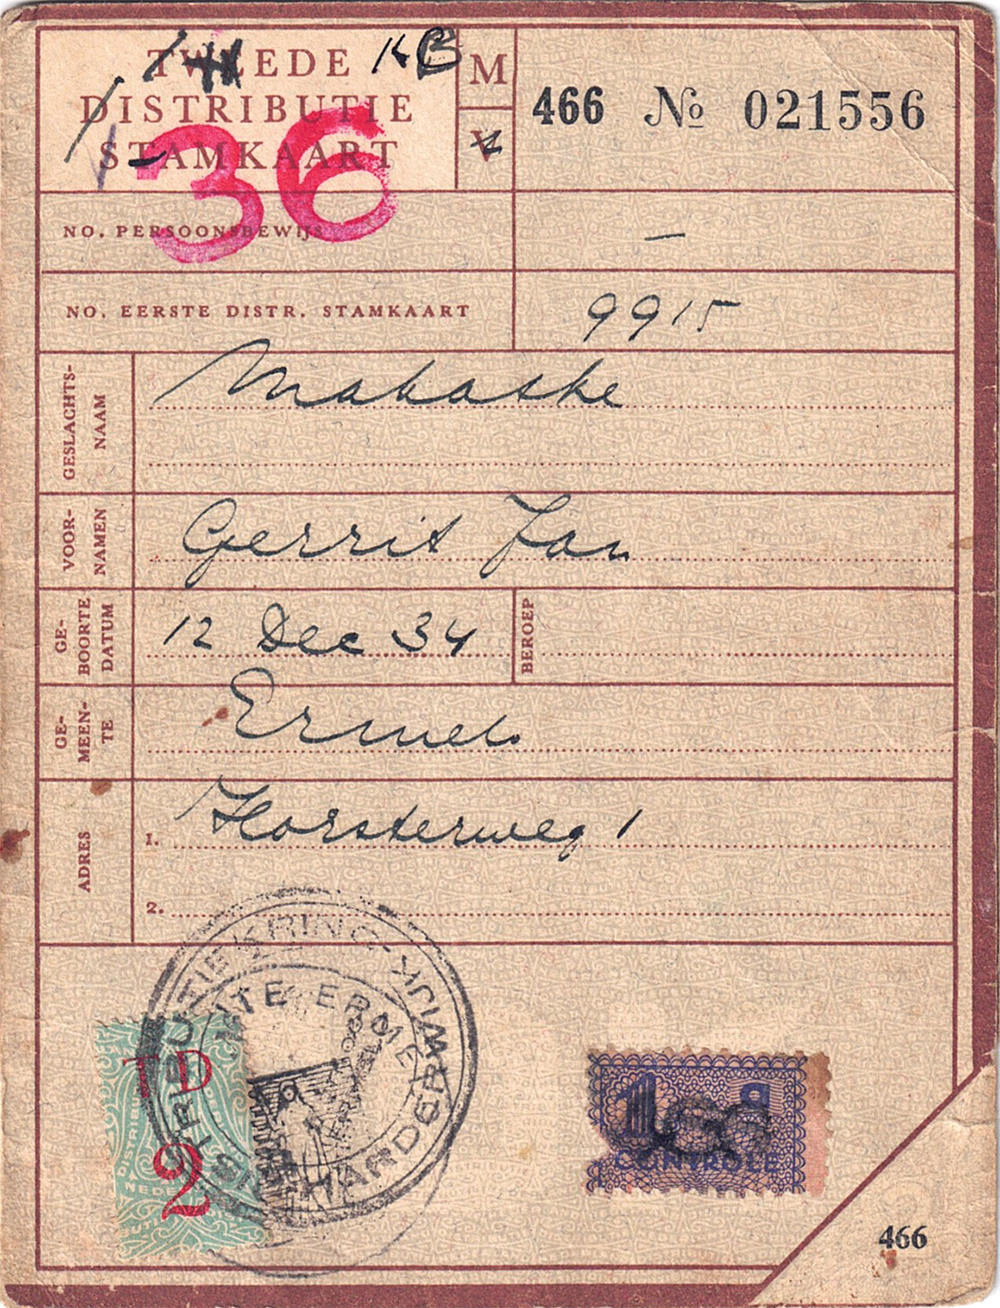 TWEEDE
DISTRIBUTIE
STAMKAART
KB
M
V
466 No 021556
36
NO. PERSOONSBEWIJS
—
NO. EERSTE DISTR. STAMKAART
9915
GESLACHTS-
NAAM
VOOR-
NAMEN
Gerrit Jan
GE-
BOORTE
DATUM
12 Dec 34
BEROEP
GE-
MEEN-
TE
Ermelo
ADRES
1. Horsterweg 1
2.
DISTRIBUTIEKRING HARDERWIJK
TD
2
CONTROLE
466